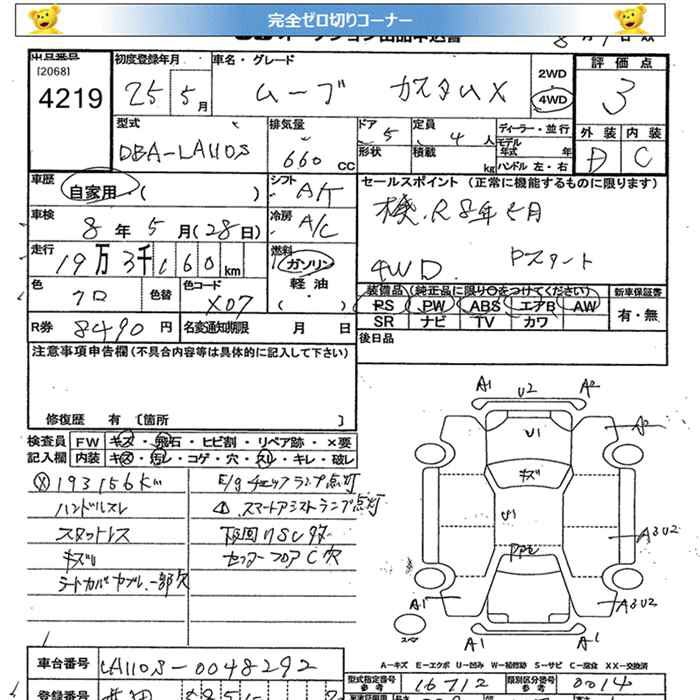 完全ゼロ切りコーナー
[2068]
4219
初度登録年月
25 5月
車名・グレード
ムーブ カスタムX
2WD
4WD
評価点
3
型式
DBA-LA110S
排気量
660 CC
ドア 5
定員 4 人
形状
積載 kg
ディーラー・並行
モデル年式 年
ハンドル 左・右
外装 内装
D C
車歴
自家用・( )
シフト A/T
セールスポイント (正常に機能するものに限ります)
検.R8年5月
4WD. Pスタート
車検
8年 5月(28日)
冷房 A/C
走行
19万3千160km
燃料
ガソリン
軽油
・( )
色
クロ
色替
色コード
X07
装備品(純正品に限り○をつけてください)
新車保証書
RS PW ABS エアB AW
SR ナビ TV カワ
有・無
R券 8490円
名変通知期限 月 日
後日品
注意事項申告欄(不具合内容等は具体的に記入して下さい)
修復歴 有 [箇所 ]
検査員記入欄
FW キズ・飛石・ヒビ割・リペア跡・×要
内装 キズ・汚レ・コゲ・穴・スレ・キレ・破レ
193156km
ハンドルスレ
スタットレス
キズ
シートカバーヤブレ、一部欠
E/gチェックランプ点灯
スマートアシストランプ点灯
下回りSC多
センターフロアC穴
A1 U2 A2
U1
A2
キズ
U1
A3U2
A1
A3U2
スペア
A1
A-キズ E-エクボ U-凹み W-補修跡 S-サビ C-腐食 XX-交換済
車台番号
LA110S-0048292
型式指定番号 参考
16712
類別区分番号 参考
0014